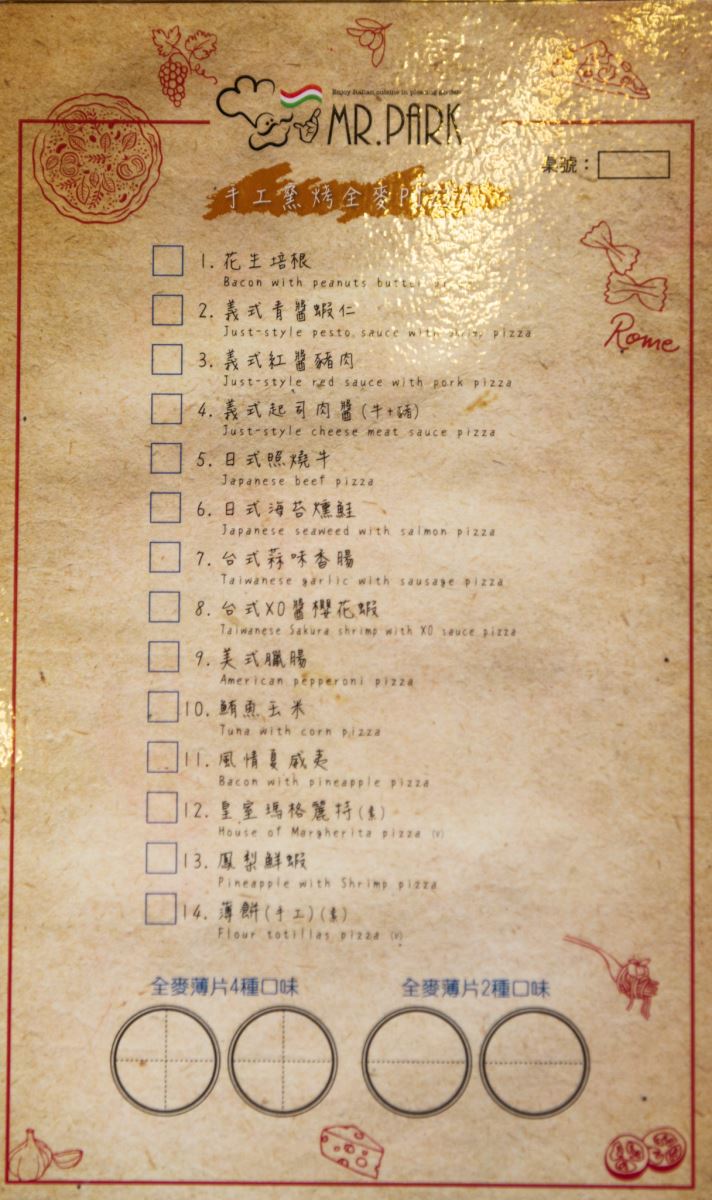 Enjoy Italian cuisine in
MR.PARK
桌號：
手工窯烤全麥
1. 花生培根
Bacon with peanuts butter
2. 義式青醬蝦仁
Just-style pesto sauce with shrimp pizza
Rome
3. 義式紅醬豬肉
Just-style red sauce with pork pizza
4. 義式起司肉醬(牛+豬)
Just-style cheese meat sauce pizza
5. 日式照燒牛
Japanese beef pizza
6. 日式海苔燻鮭
Japanese seaweed with salmon pizza
7. 台式蒜味香腸
Taiwanese garlic with sausage pizza
8. 台式XO醬櫻花蝦
Taiwanese Sakura shrimp with XO sauce pizza
9. 美式臘腸
American pepperoni pizza
10. 鮪魚玉米
Tuna with corn pizza
11. 風情夏威夷
Bacon with pineapple pizza
12. 皇室瑪格麗特(素)
House of Margherita pizza (V)
13. 鳳梨鮮蝦
Pineapple with Shrimp pizza
14. 薄餅(手工)(素)
Flour totillas pizza (V)
全麥薄片4種口味 全麥薄片2種口味